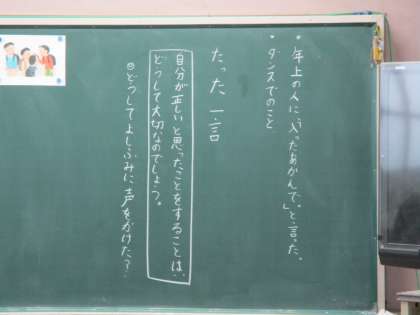 ・年上の人に「入ったあかんで。」と言った。
・ダンスでのこと
たった一言
自分が正しいと思ったことをすることは、
どうして大切なのでしょう。
◎どうしてよしふみに声をかけた？